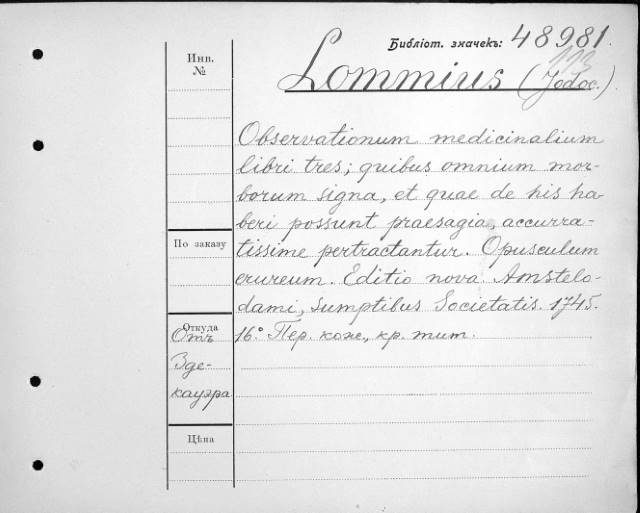 Библіот. значекъ: 48981.
113
Инв. №
Lommius (Jodoc.)
Observationum medicinalium
libri tres; quibus omnium mor-
borum signa, et quae de his ha-
beri possunt praesagia, accurra-
По заказу
tissime pertractantur. Opusculum
erureum. Editio nova. Amstelo-
dami, sumptibus Societatis. 1745.
Откуда
Отъ
16° Пер. коже., кр. тит.
Зде-
кауэра
Цѣна